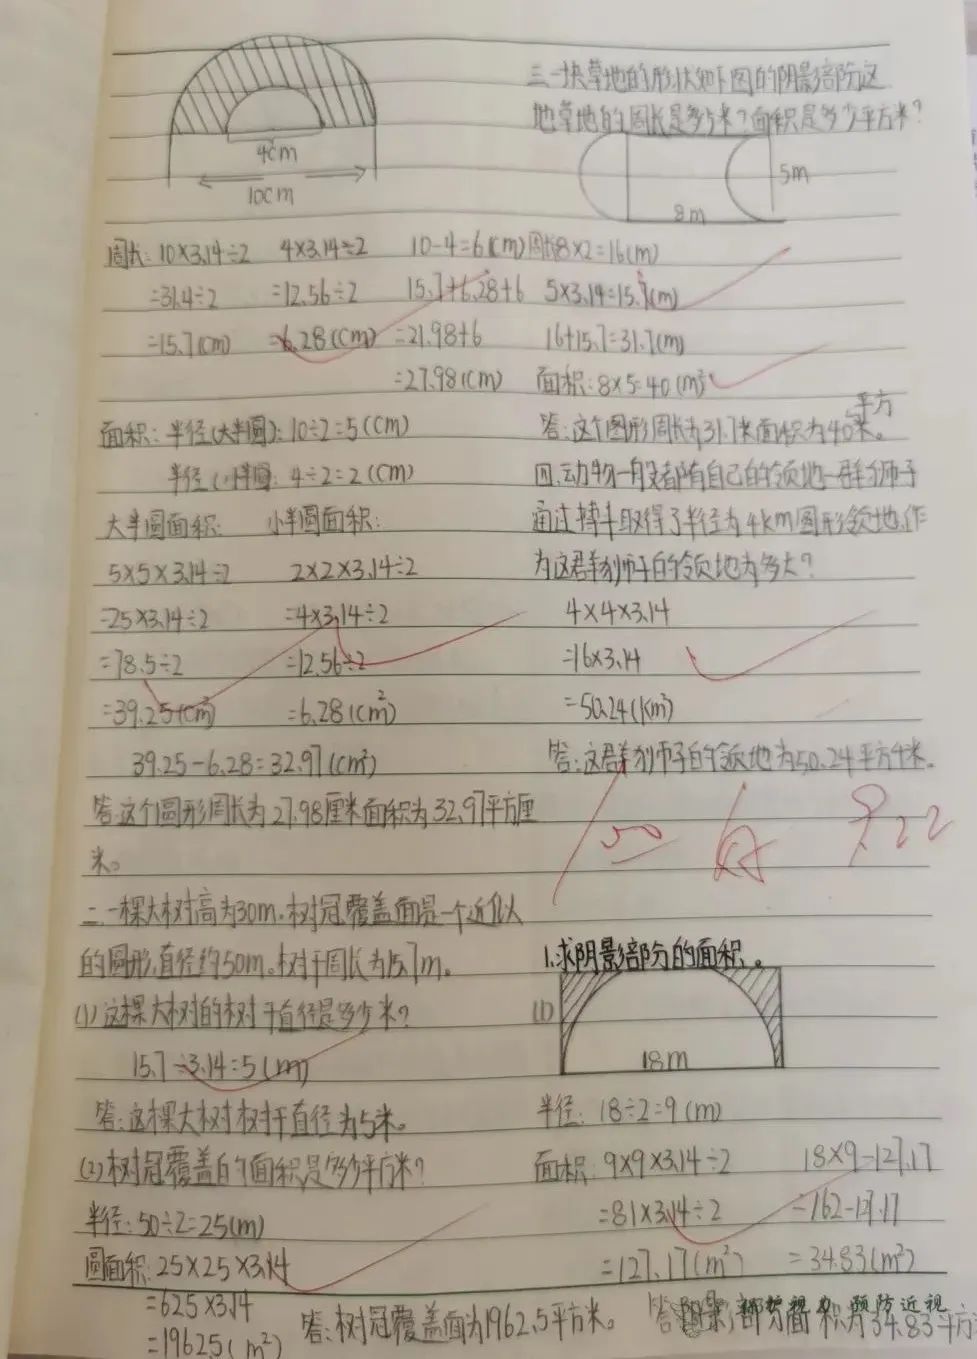 4cm
10cm
周长: 10×3.14÷2 4×3.14÷2 10-4=6(cm)
=31.4÷2 =12.56÷2 15.7+6.28+6
=15.7(cm) =6.28(cm) =21.98+6
=27.98(cm)
面积: 半径(大半圆): 10÷2=5(cm)
半径(小半圆: 4÷2=2(cm)
大半圆面积: 小半圆面积:
5×5×3.14÷2 2×2×3.14÷2
=25×3.14÷2 =4×3.14÷2
=78.5÷2 =12.56÷2
=39.25(cm²) =6.28(cm²)
39.25-6.28=32.97(cm²)
答:这个圆形周长为27.98厘米面积为32.97平方厘
米。
二.一棵大树高为30m.树冠覆盖面是一个近似
的圆形,直径约50m。树干周长为15.7m。
(1)这棵大树的树干直径是多少米?
15.7÷3.14=5(m)
答:这棵大树树干直径为5米。
(2)树冠覆盖的面积是多少平方米?
半径:50÷2=25(m)
圆面积:25×25×3.14
=625×3.14
=1962.5(m²)
答:树冠覆盖面为1962.5平方米。
三.一块草地的形状如下图的阴影部分这
地草地的周长是多少米?面积是多少平方米?
5m
8m
周长8×2=16(m)
5×3.14=15.7(m)
16+15.7=31.7(m)
面积:8×5=40(m²)
平方
答:这个图形周长为31.7米面积为40米。
四.动物一般都有自己的领地一群狮子
通过搏斗取得了半径为4km圆形领地,作
为这群狮子的领地为多大?
4×4×3.14
=16×3.14
=50.24(km²)
答:这群狮子的领地为50.24平方千米。
100
1.求阴影部分的面积。
(1)
18m
半径:18÷2=9(m)
面积:9×9×3.14÷2 18×9-127.17
=81×3.14÷2 =162-127.17
=127.17(m²) =34.83(m²)
答:阴影部分面积为34.83平方
预防近视